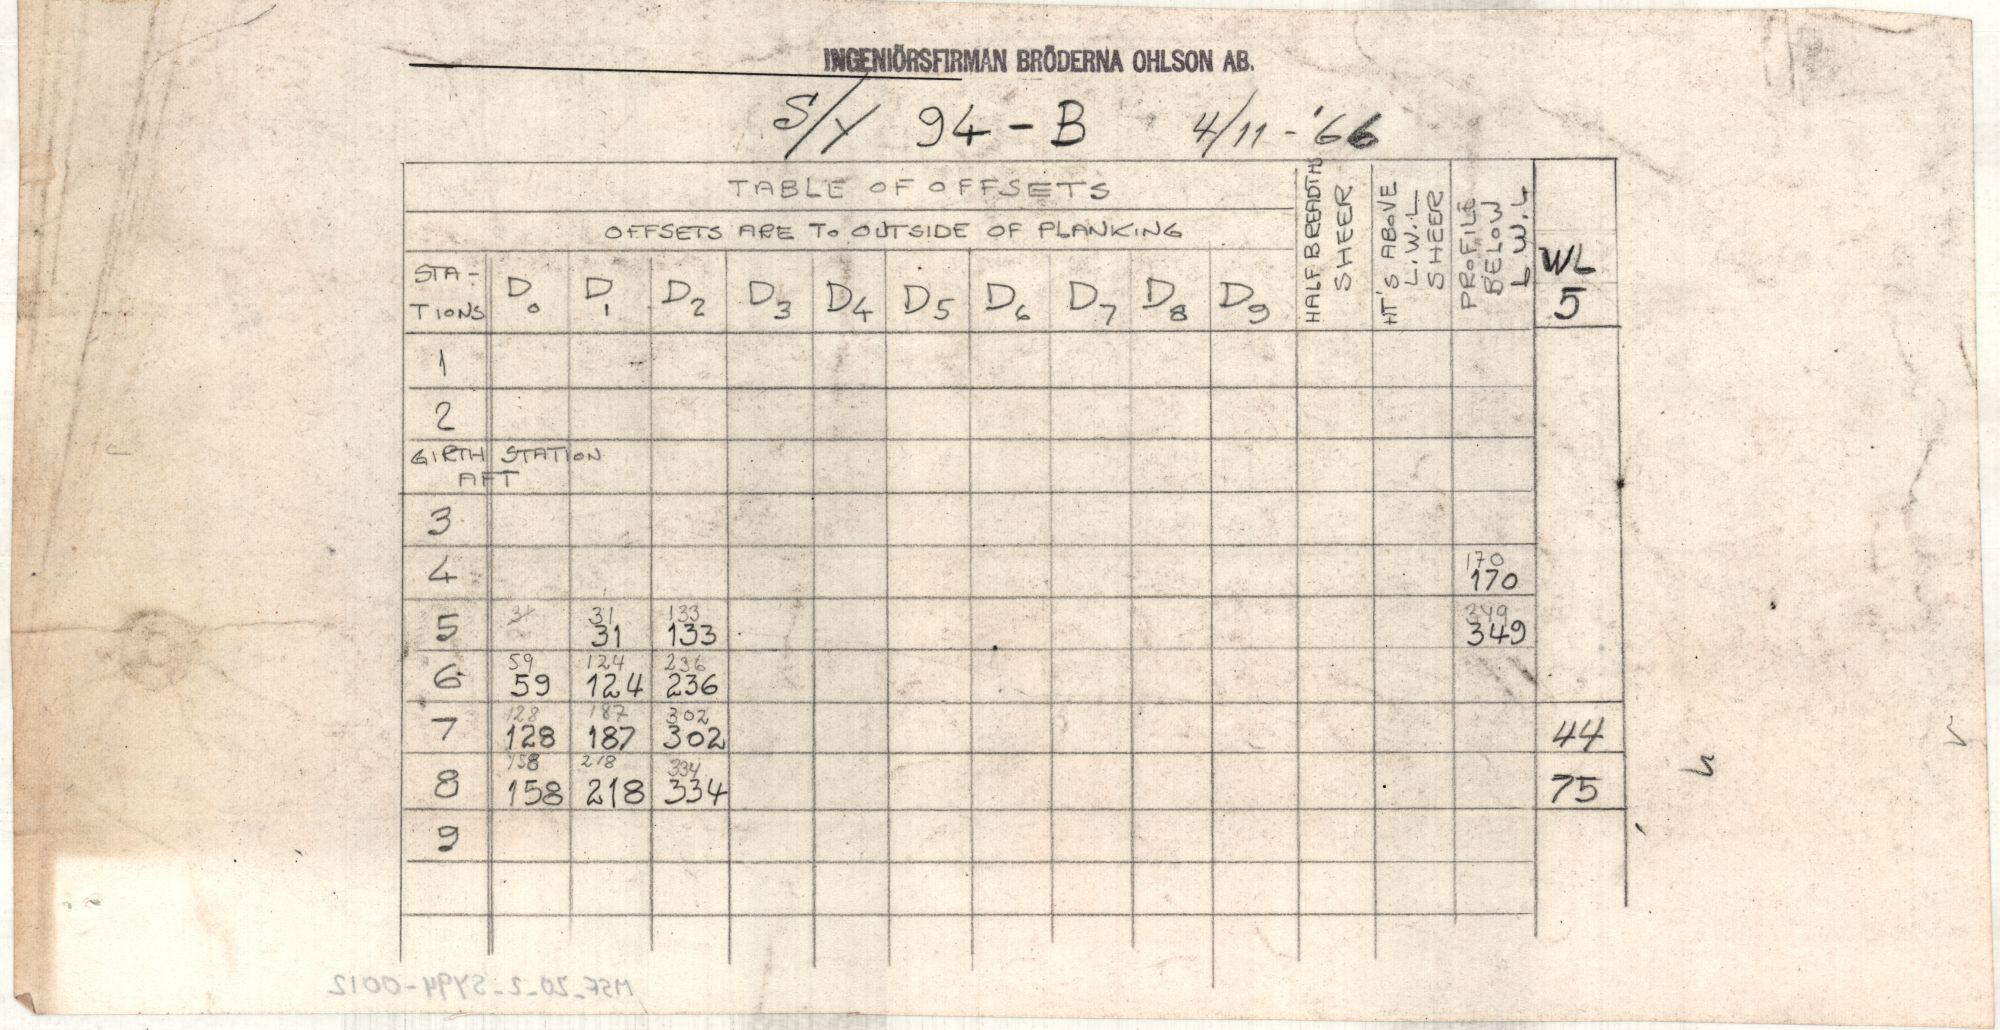 INGENIÖRSFIRMAN BRÖDERNA OHLSON AB.
S/Y 94-B 4/11-'66
TABLE OF OFFSETS
OFFSETS ARE TO OUTSIDE OF PLANKING
STA-
TIONS
D0 D1 D2 D3 D4 D5 D6 D7 D8 D9
HALFBREADTHS
SHEER
HT'S ABOVE
L.W.L
SHEER
PROFILE
BELOW
L.W.L
WL
5
1
2
GIRTH STATION
AFT
3
4 170
170
5 31 31 133 349
31 133 349
6 59 124 236
59 124 236
7 128 187 302
128 187 302 44
8 158 218 334
158 218 334 75
9
MSF_20-2-SY94-0012